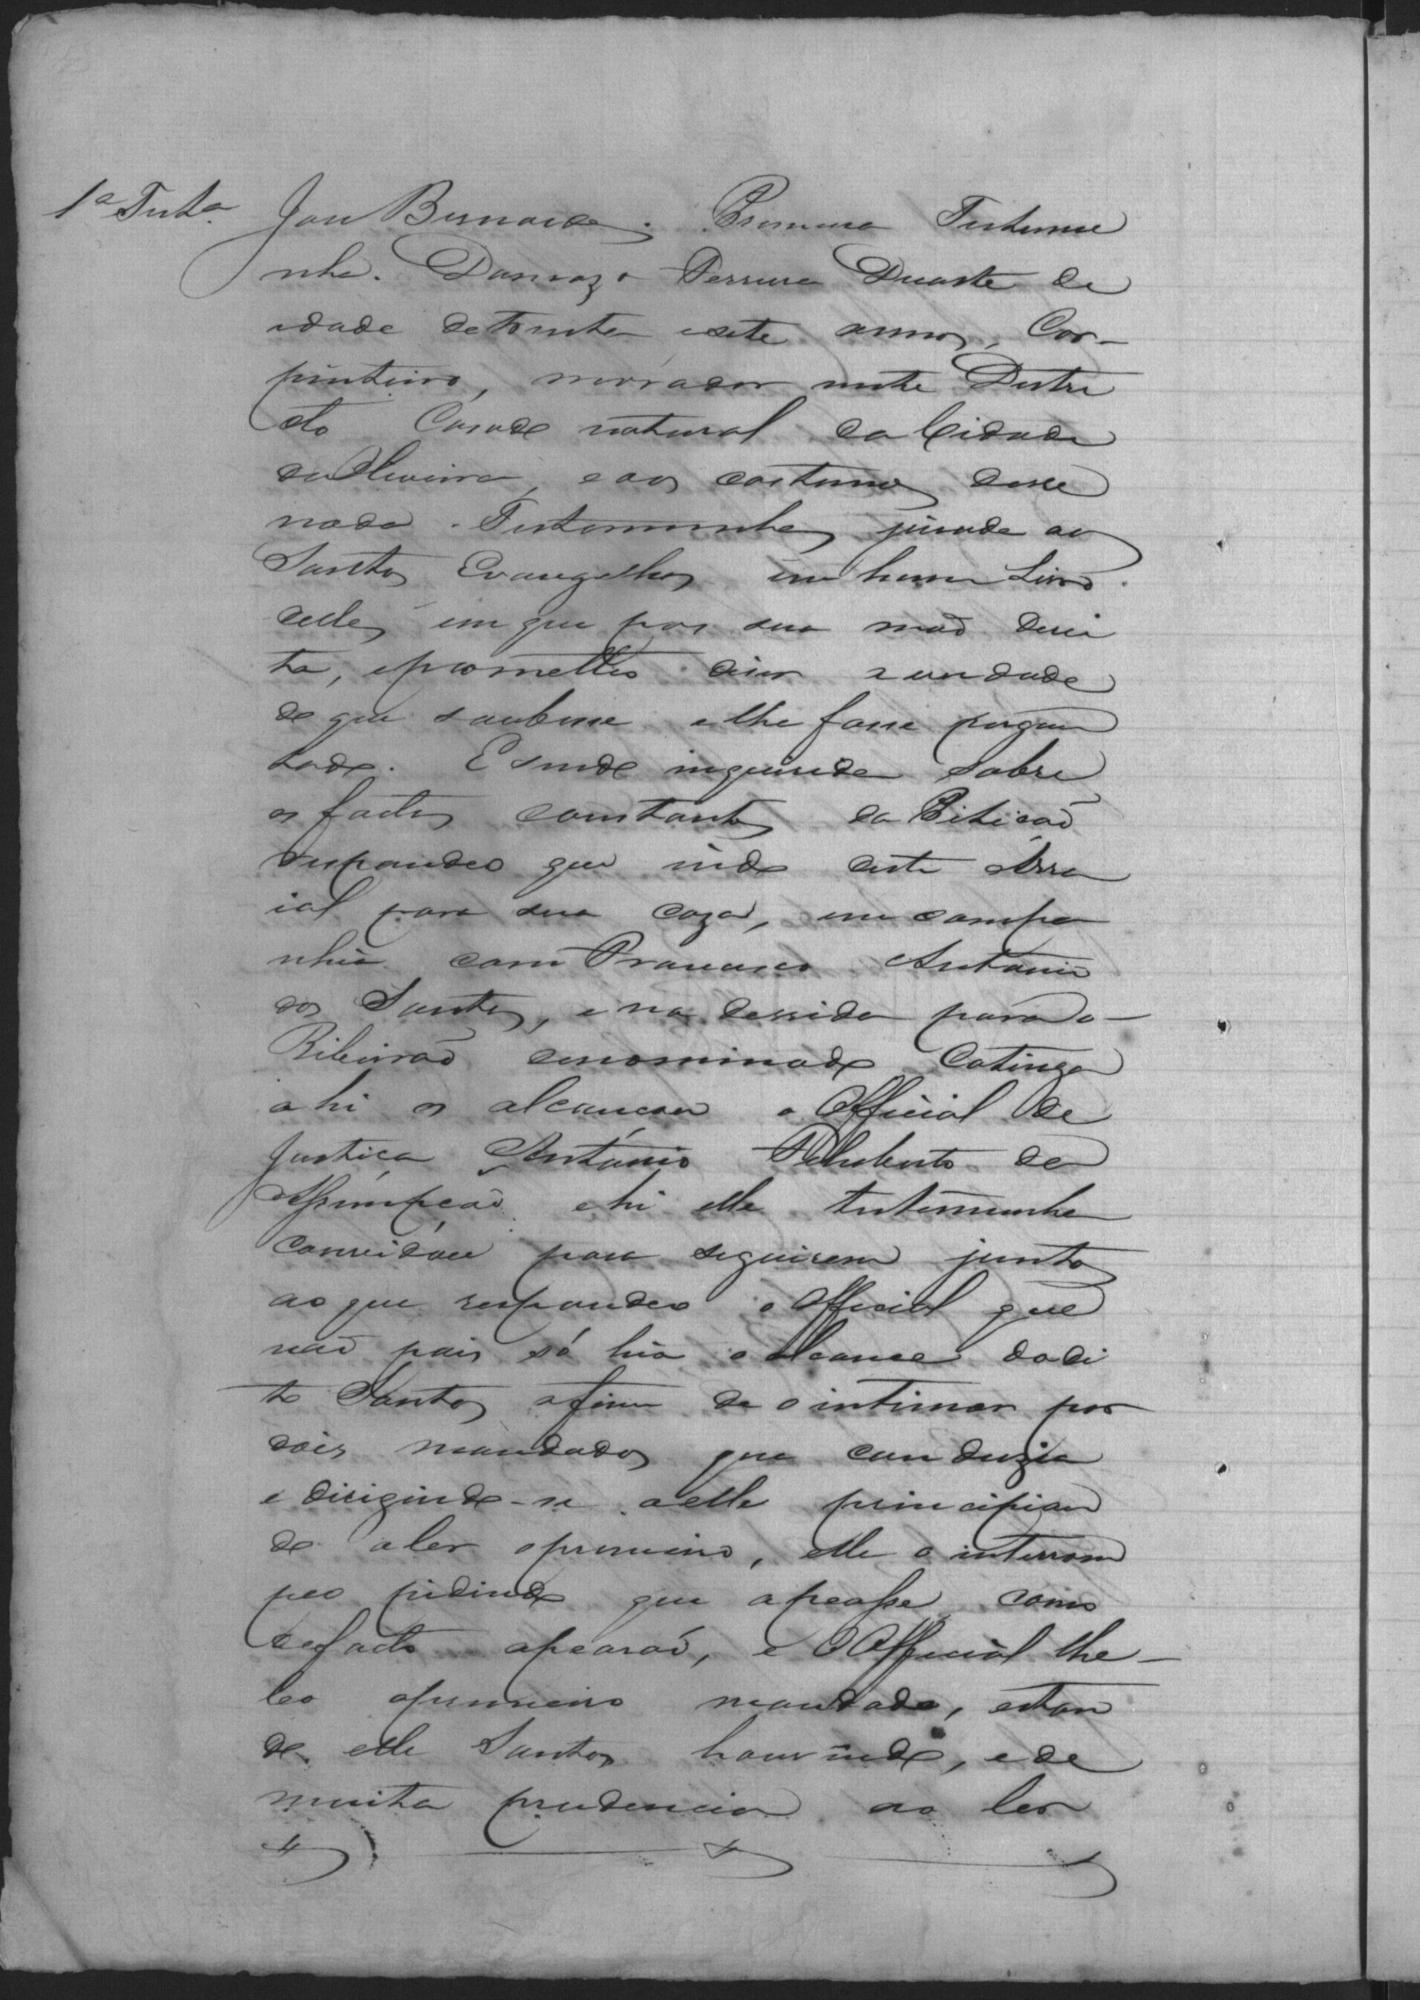 1ª Testª. João Bernardes. Primeira Testemu
nha. Damazo Ferreira Duarte de
idade de trinta e sete annos, Car-
pinteiro, morador neste Destri
cto Cazado natural da Cidade
da Oliveira, e aos costumes disse
nada. Testemunha jurada aos
Santos Evangelhos em hum Livro
delles em que pos sua mão direi
ta, e prometteo diser a verdade
do que soubesse e lhe fosse pergun
tado. E sendo inquirida sobre
os factos constantes da Petição
respondeo que indo deste Arra
ial para sua caza, em compa
nhia com Francisco Antonio
dos Santos, e na descida para o
Ribeirão denominado Catinga
ahi os alcançou o Official de
Justiça António Feliberto de
Assumpção ahi elle testemunha
convidou para seguirem juntos
ao que respondeo o Official que
não pois só hia o alcance do di
to Santos afim de o intimar por
dois mandados que conduzia
e dirigindo-se a elle principian
do a ler o primeiro, elle o interrom
peo pidindo que apeasse como
de facto apearão, e o Official lhe
leo o primeiro mandado, estan
do elle Santos houvindo, e de
muita prudencia ao ler